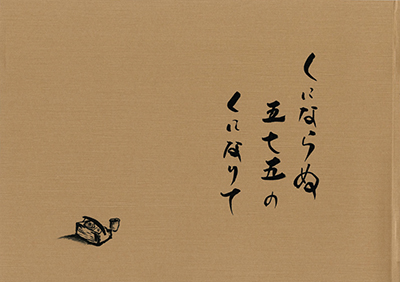 くにならぬ
五七五の
くになりて